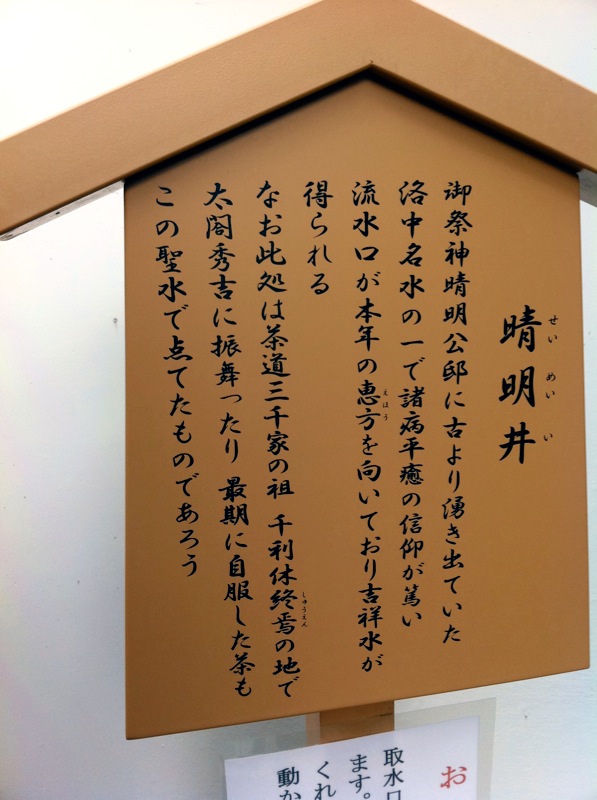 晴明井
せいめいい
御祭神晴明公邸に古より湧き出ていた
洛中名水の一で諸病平癒の信仰が篤い
流水口が本年の恵方を向いており吉祥水が
えほう
得られる
なお此処は茶道三千家の祖 千利休終焉の地で
しゅうえん
太閤秀吉に振舞ったり 最期に自服した茶も
この聖水で点てたものであろう
お
取水口
ます。
くれ
動か